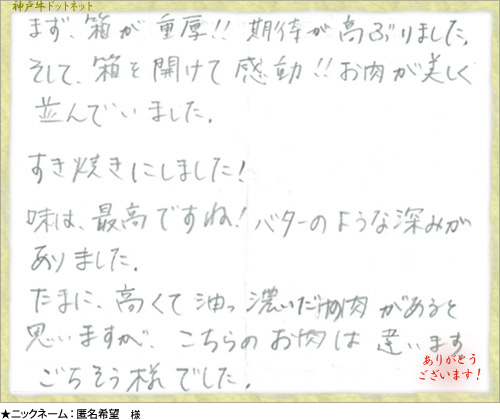 神戸牛ドットネット
まず、箱が重厚!! 期待が高ぶりました。
そして、箱を開けて感動!! お肉が美しく
並んでいました。
すき焼きにしました!
味は、最高ですね! バターのような深みが
ありました。
たまに、高くて油っ濃いだけのお肉があると
思いますが、こちらのお肉は違います
ごちそう様でした。
ありがとう
ございます!
★ニックネーム:匿名希望 様